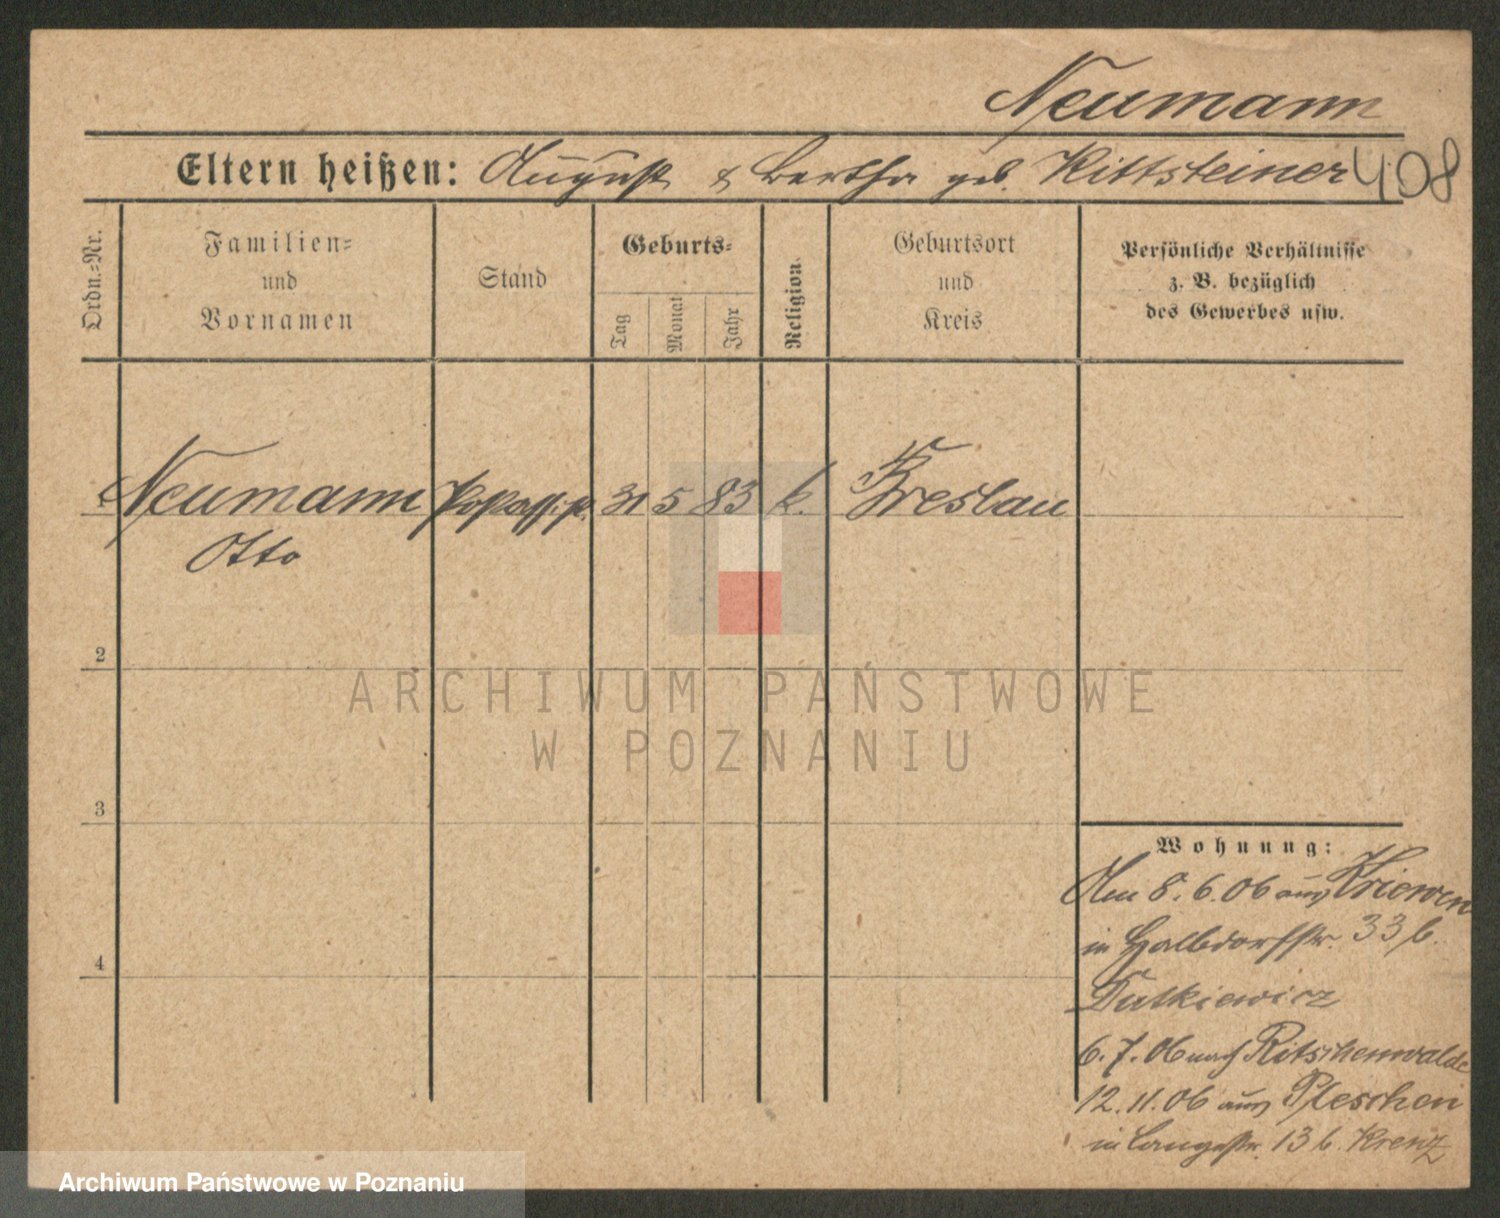 Neumann
Eltern heißen: August & Bertha geb. Rittsteiner
408
Ordn.=Nr.
Familien=
und
Vornamen
Stand
Geburts=
Tag
Monat
Jahr
Religion
Geburtsort
und
Kreis
Persönliche Verhältnisse
z. B. bezüglich
des Gewerbes usw.
1 Neumann 31 5 83 k. Breslau
Otto
2
ARCHIWUM PAŃSTWOWE
W POZNANIU
3
Wohnung:
Am 8.6.06 aus Kriewen
in Halbdorfstr. 33 b.
Dutkiewicz
4
6.7.06 nach Ritschenwalde
12.11.06 aus Pleschen
in Langestr. 13 b. Krenz
Archiwum Państwowe w Poznaniu